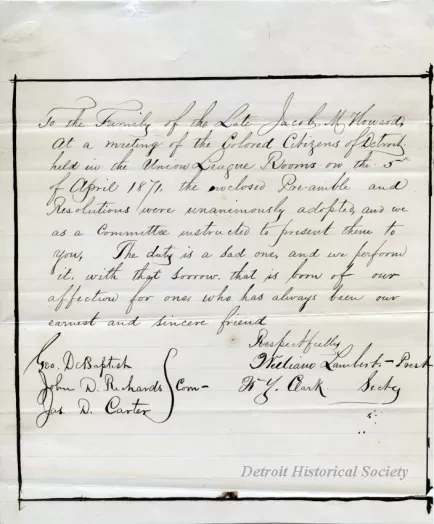 To the Family of the Late Jacob M Howard,
At a meeting of the Colored Citizens of Detroit
held in the Union League Rooms on the 5th
of April 1871, the enclosed Pre-amble and
Resolutions were unanimously adopted, and we
as a Committee instructed to present them to
you, The duty is a sad one, and we perform
it, with that sorrow, that is born of our
affection for one, who has always been our
earnest and sincere friend
Respectfully
Geo. DeBaptist
John D. Richards
Jas. D. Carter
Com-
William Lambert - Prest
W Y. Clark Secty
Detroit Historical Society